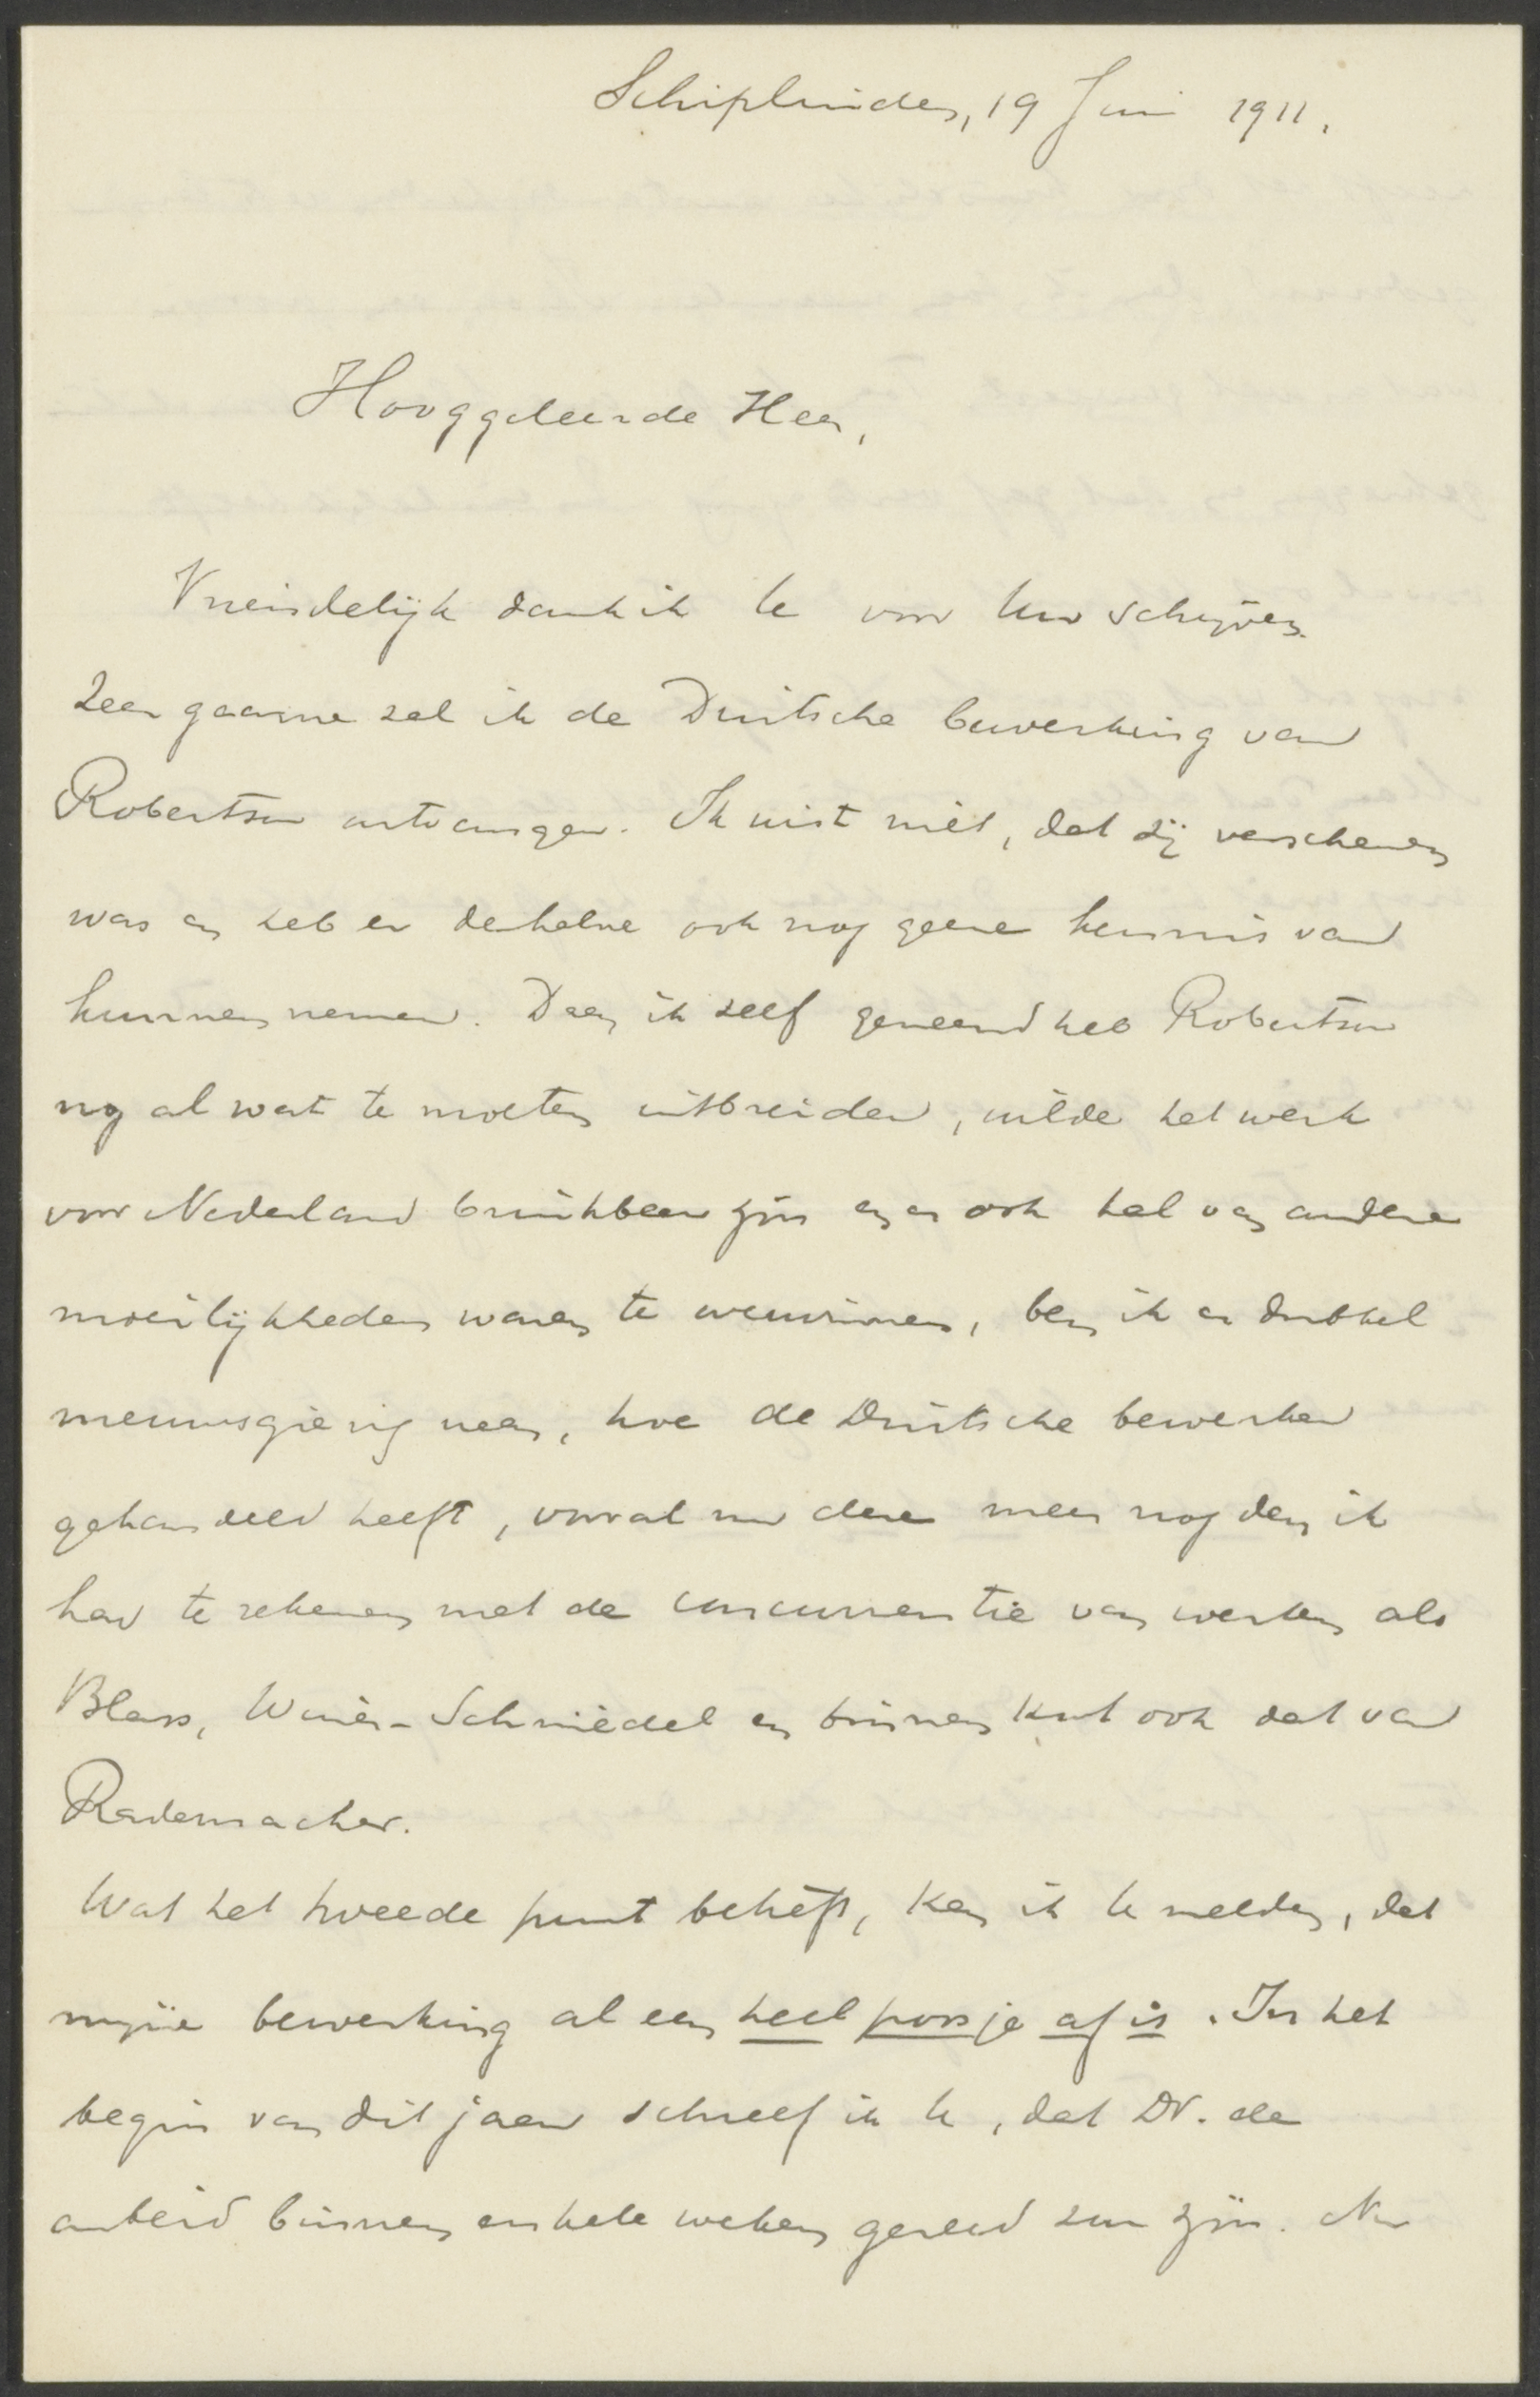 Schipluiden, 19 Juni 1911.
Hooggeleerde Heer,
Vriendelijk dank ik U voor Uw schrijven.
Zeer gaarne zal ik de Duitsche bewerking van
Robertson ontvangen. Ik wist niet, dat zij verschenen
was en heb er derhalve ook nog geene kennis van
kunnen nemen. Daar ik zelf gemeend heb Robertson
nog al wat te moeten uitbreiden, wilde het werk
voor Nederland bruikbaar zijn en er ook tal van andere
moeilijkheden waren te overwinnen, ben ik er dubbel
nieuwsgierig naar, hoe de Duitsche bewerker
gehandeld heeft, vooral nu deze meer nog dan ik
had te rekenen met de concurrentie van werken als
Blass, Winer-Schmiedel en binnen kort ook dat van
Radermacher.
Wat het tweede punt betreft, kan ik U melden, dat
mijne bewerking al een heel poosje af is. In het
begin van dit jaar schreef ik U, dat Dr. de
arbeid binnen enkele weken gereed zou zijn. Nu